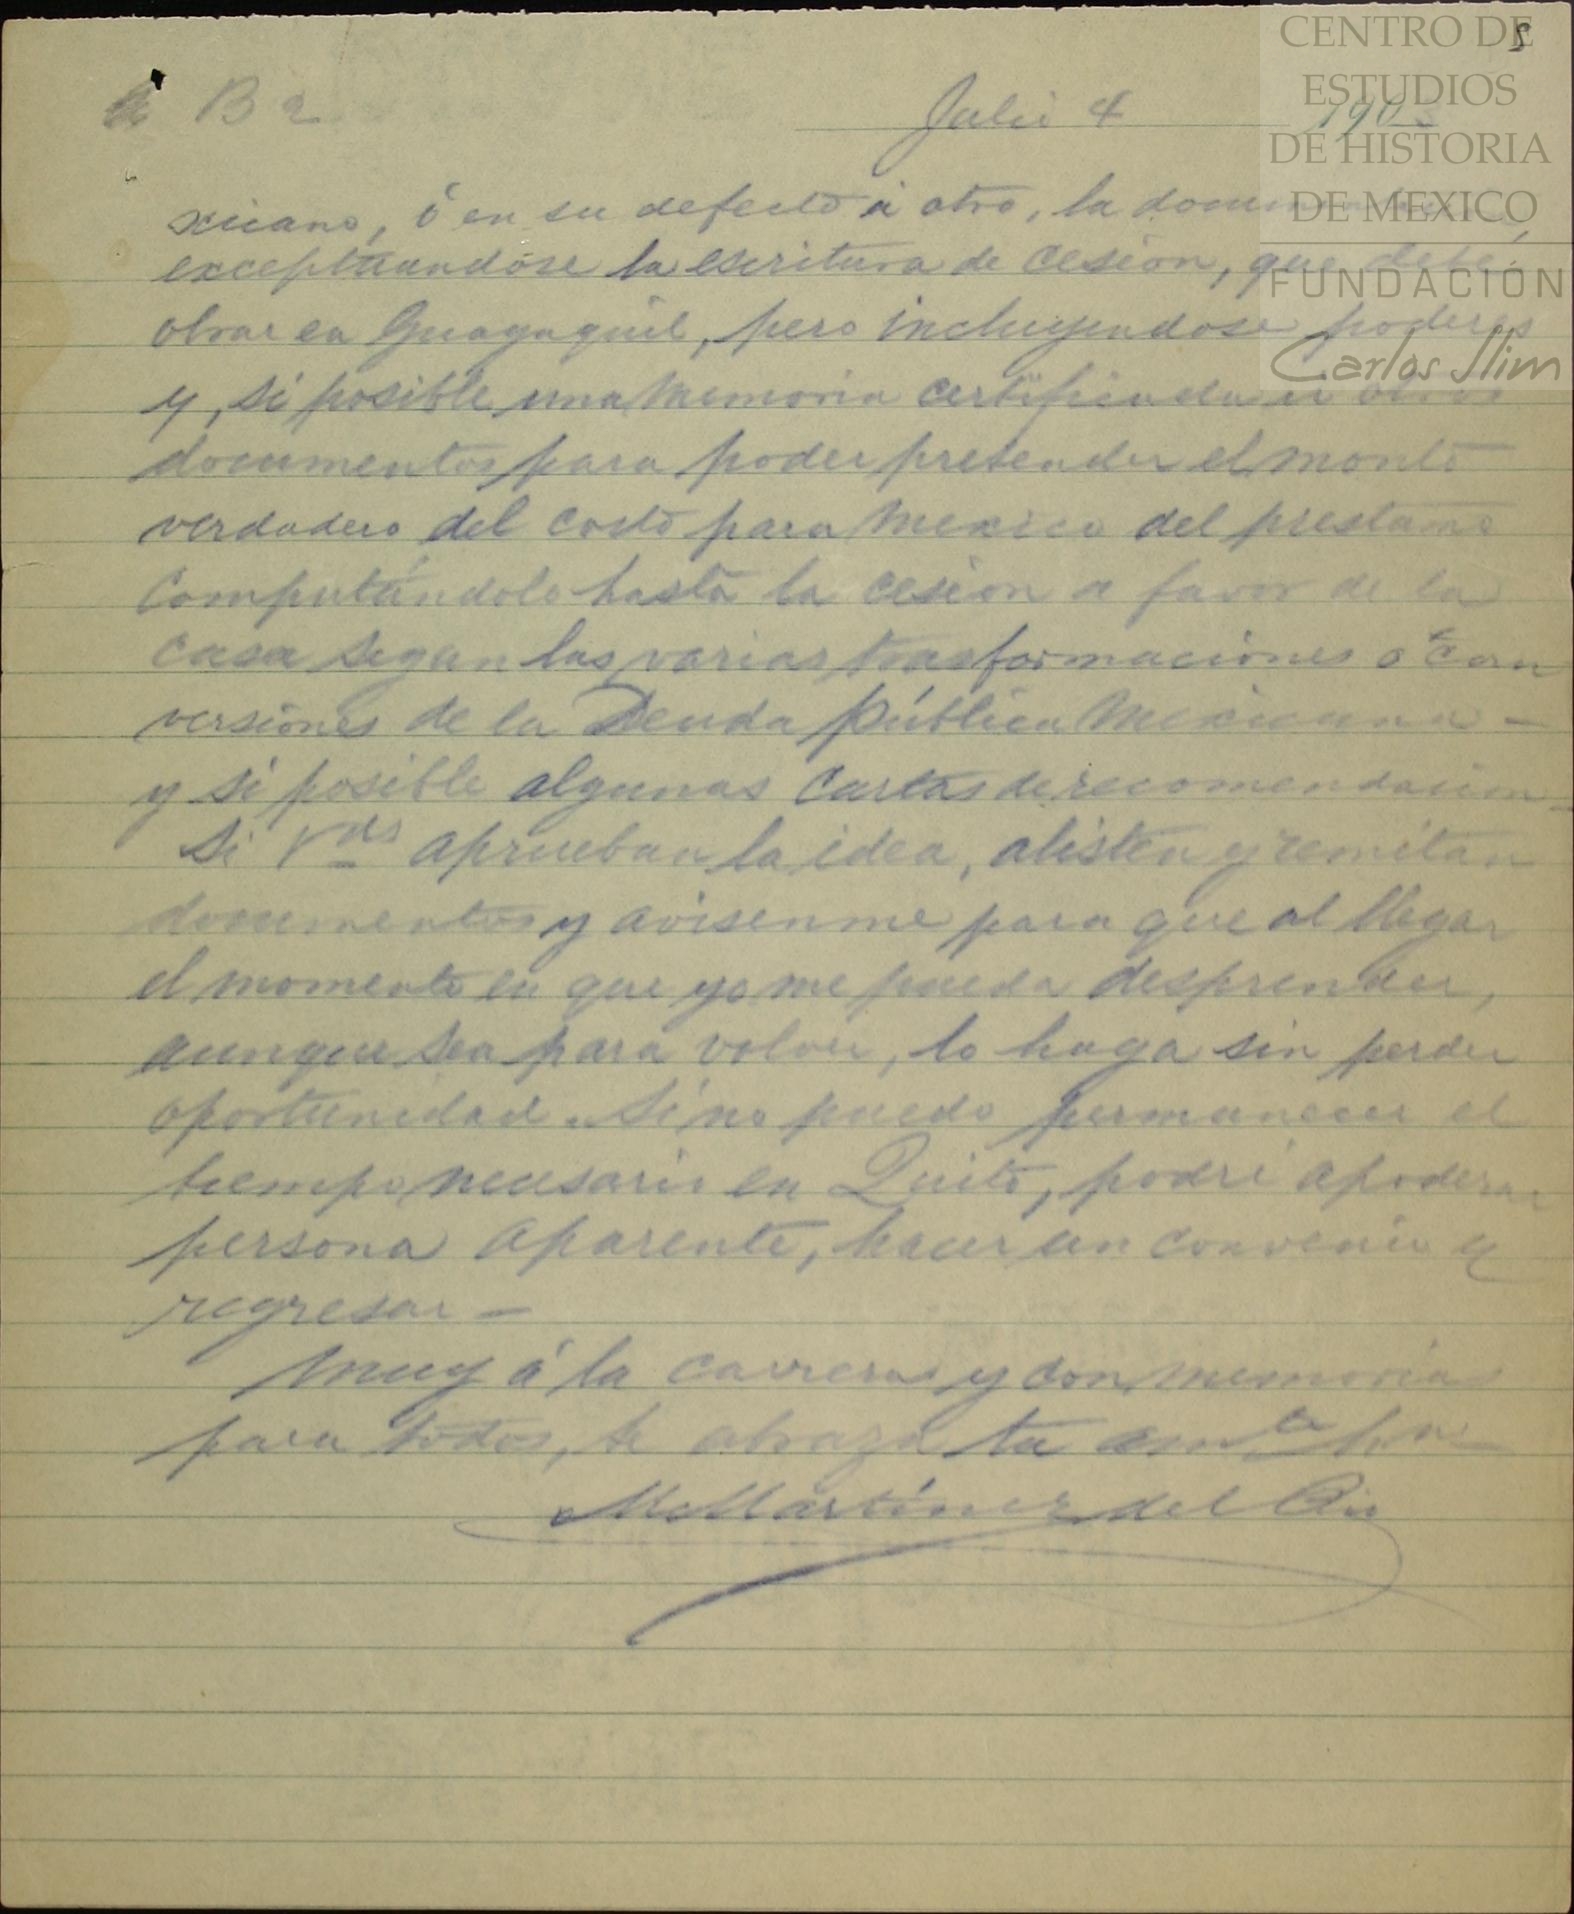 CENTRO DE
ESTUDIOS
DE HISTORIA
DE MEXICO
FUNDACIÓN
Carlos Slim
B 2 Julio 4 190
xicano, ó en su defecto á otro, la
exceptuandose la escritura de cesión, que debe
obrar en Guayaquil, pero incluyendose poderes
y, si posible una memoria certificada
documentos para poder pretender el monto
verdadero del costo para Mexico del prestamo
computándolo hasta la cesion a favor de la
casa segun las varias trasformaciones ó con
versiones de la Deuda pública Mexicana –
y si posible algunas cartas de recomendacion –
Si Vds aprueban la idea, alisten y remitan
documentos y avisenme para que al llegar
el momento en que yo me pueda desprender,
aunque sea para volver, lo haga sin perder
oportunidad. Si no puedo permanecer el
tiempo necesario en Quito, podré apoderar
persona aparente, hacer un convenio y
regresar –
Muy á la carrera y con memorias
para todos, te abraza tu amte hno
M Martínez del Rio